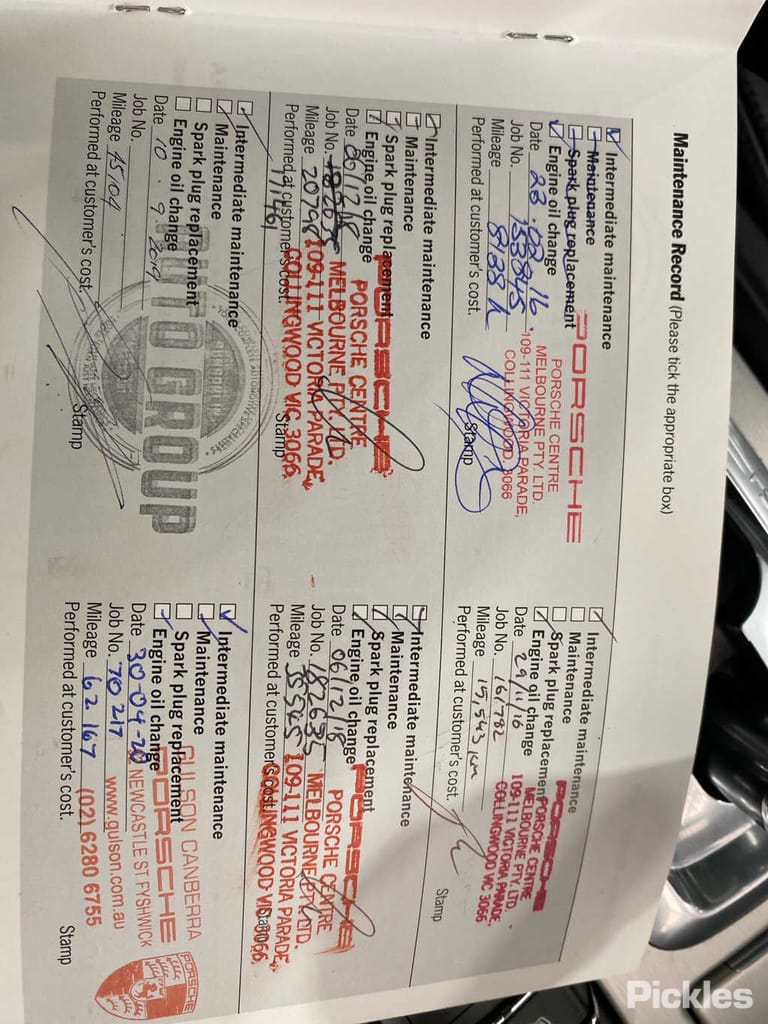 Maintenance Record (Please tick the appropriate box)
Intermediate maintenance
Maintenance
Spark plug replacement
Engine oil change
Date 23.02.16.
Job No. 153845
Mileage 8138 k
Performed at customer's cost.
Stamp
PORSCHE
PORSCHE CENTRE
MELBOURNE PTY. LTD.
109-111 VICTORIA PARADE,
COLLINGWOOD 3066
Intermediate maintenance
Maintenance
Spark plug replacement
Engine oil change
Date 29/11/16
Job No. 161782
Mileage 15,543 km
Performed at customer's cost.
Stamp
PORSCHE
PORSCHE CENTRE
MELBOURNE PTY. LTD.
109-111 VICTORIA PARADE,
COLLINGWOOD VIC 3066
Intermediate maintenance
Maintenance
Spark plug replacement
Engine oil change
Date
Job No.
Mileage 20798
Performed at customer's cost.
171461
Stamp
PORSCHE
PORSCHE CENTRE
MELBOURNE PTY. LTD.
109-111 VICTORIA PARADE,
COLLINGWOOD VIC 3066
Intermediate maintenance
Maintenance
Spark plug replacement
Engine oil change
Date 06/12/18
Job No. 182635
Mileage 35545
Performed at customer's cost.
Stamp
PORSCHE
PORSCHE CENTRE
MELBOURNE PTY. LTD.
109-111 VICTORIA PARADE,
COLLINGWOOD VIC 3066
Intermediate maintenance
Maintenance
Spark plug replacement
Engine oil change
Date 10.9.2019
Job No.
Mileage 45104
Performed at customer's cost.
Stamp
AUTO GROUP
Intermediate maintenance
Maintenance
Spark plug replacement
Engine oil change
Date 30-04-20
Job No. 70217
Mileage 62167
Performed at customer's cost.
Stamp
GULSON CANBERRA
PORSCHE
NEWCASTLE ST. FYSHWICK
www.gulson.com.au
(02) 6280 6755
PORSCHE
Pickles